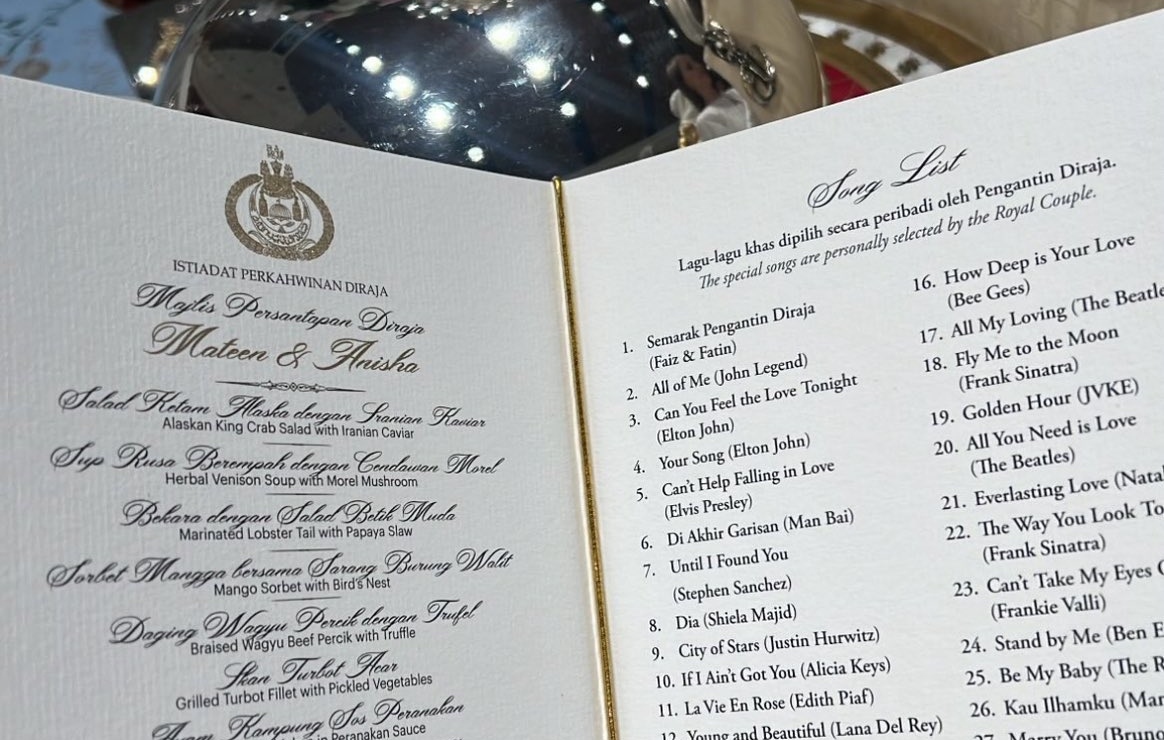 ISTIADAT PERKAHWINAN DIRAJA
Majlis Persantapan Diraja
Mateen & Anisha
Salad Ketam Alaska dengan Iranian Kaviar
Alaskan King Crab Salad with Iranian Caviar
Sup Rusa Berempah dengan Cendawan Morel
Herbal Venison Soup with Morel Mushroom
Bekara dengan Salad Betik Muda
Marinated Lobster Tail with Papaya Slaw
Sorbet Mangga bersama Sarang Burung Walit
Mango Sorbet with Bird's Nest
Daging Wagyu Percik dengan Trufel
Braised Wagyu Beef Percik with Truffle
Ikan Turbot Acar
Grilled Turbot Fillet with Pickled Vegetables
Ayam Kampung Sos Peranakan
in Peranakan Sauce
Song List
Lagu-lagu khas dipilih secara peribadi oleh Pengantin Diraja.
The special songs are personally selected by the Royal Couple.
1. Semarak Pengantin Diraja
(Faiz & Fatin)
2. All of Me (John Legend)
3. Can You Feel the Love Tonight
(Elton John)
4. Your Song (Elton John)
5. Can't Help Falling in Love
(Elvis Presley)
6. Di Akhir Garisan (Man Bai)
7. Until I Found You
(Stephen Sanchez)
8. Dia (Shiela Majid)
9. City of Stars (Justin Hurwitz)
10. If I Ain't Got You (Alicia Keys)
11. La Vie En Rose (Edith Piaf)
12. Young and Beautiful (Lana Del Rey)
16. How Deep is Your Love
(Bee Gees)
17. All My Loving (The Beatle
18. Fly Me to the Moon
(Frank Sinatra)
19. Golden Hour (JVKE)
20. All You Need is Love
(The Beatles)
21. Everlasting Love (Nata
22. The Way You Look To
(Frank Sinatra)
23. Can't Take My Eyes
(Frankie Valli)
24. Stand by Me (Ben E
25. Be My Baby (The R
26. Kau Ilhamku (Man
27. Marry You (Bruno